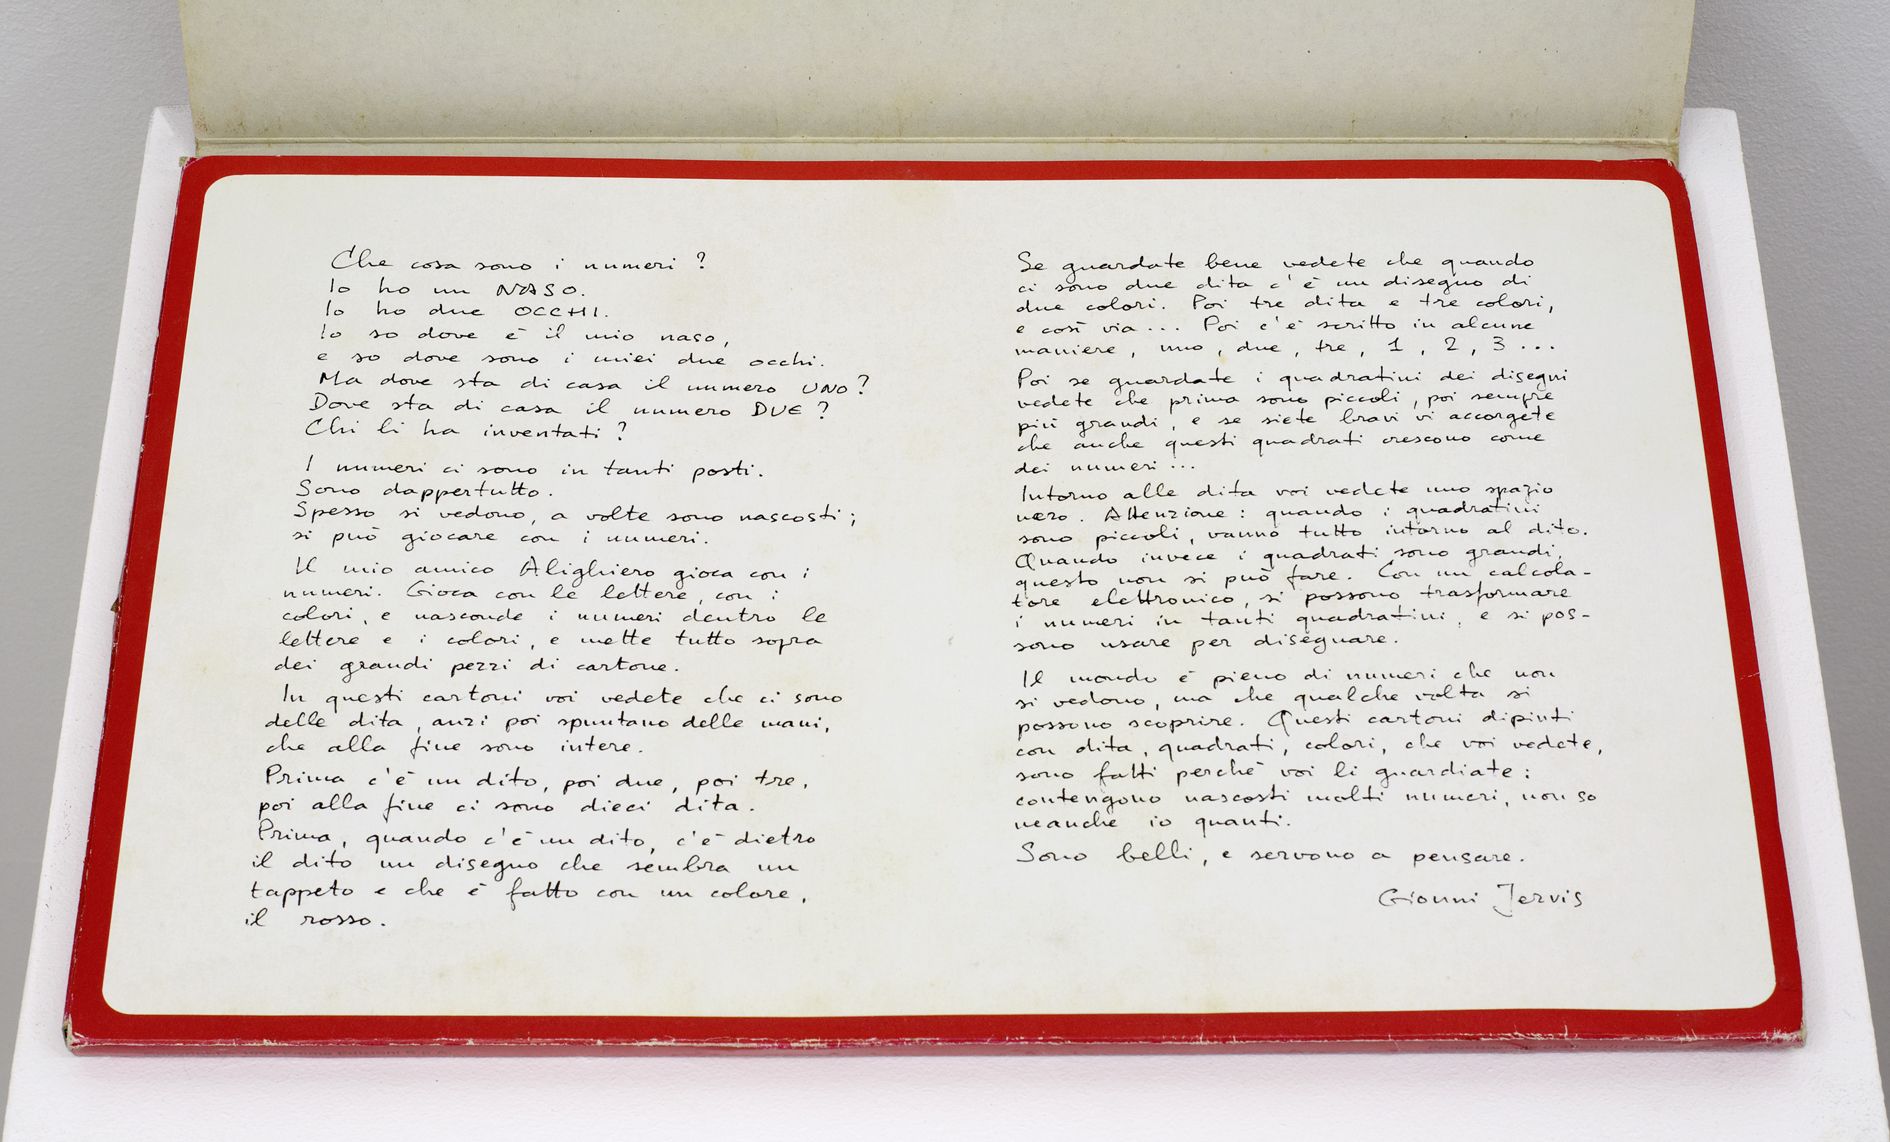 Che cosa sono i numeri ?
Io ho un NASO.
Io ho due OCCHI.
Io so dove è il mio naso,
e so dove sono i miei due occhi.
Ma dove sta di casa il numero UNO ?
Dove sta di casa il numero DUE ?
Chi li ha inventati ?
I numeri ci sono in tanti posti.
Sono dappertutto.
Spesso si vedono, a volte sono nascosti ;
si può giocare con i numeri.
Il mio amico Alighiero gioca con i
numeri. Gioca con le lettere, con i
colori, e nasconde i numeri dentro le
lettere e i colori, e mette tutto sopra
dei grandi pezzi di cartone.
In questi cartoni voi vedete che ci sono
delle dita, anzi poi spuntano delle mani,
che alla fine sono intere.
Prima c'è un dito, poi due, poi tre,
poi alla fine ci sono dieci dita.
Prima, quando c'è un dito, c'è dietro
il dito un disegno che sembra un
tappeto e che è fatto con un colore,
il rosso.
Se guardate bene vedete che quando
ci sono due dita c'è un disegno di
due colori. Poi tre dita e tre colori,
e così via ... Poi c'è scritto in alcune
maniere, uno, due, tre, 1, 2, 3 ...
Poi se guardate i quadratini dei disegni
vedete che prima sono piccoli, poi sempre
più grandi, e se siete bravi vi accorgete
che anche questi quadrati crescono come
dei numeri ...
Intorno alle dita voi vedete uno spazio
nero. Attenzione : quando i quadratini
sono piccoli, vanno tutto intorno al dito.
Quando invece i quadrati sono grandi,
questo non si può fare. Con un calcola-
tore elettronico, si possono trasformare
i numeri in tanti quadratini, e si pos-
sono usare per disegnare.
Il mondo è pieno di numeri che non
si vedono, ma che qualche volta si
possono scoprire. Questi cartoni dipinti
con dita, quadrati, colori, che voi vedete,
sono fatti perché voi li guardiate :
contengono nascosti molti numeri, non so
neanche io quanti.
Sono belli, e servono a pensare.
Gionni Jervis